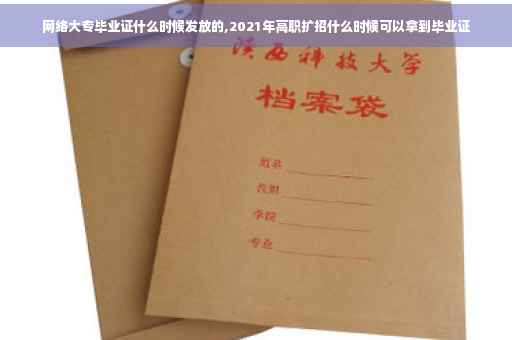 网络大专毕业证什么时候发放的,2021年高职扩招什么时候可以拿到毕业证
陕西科技大学
档案袋
姓名
学院
专业